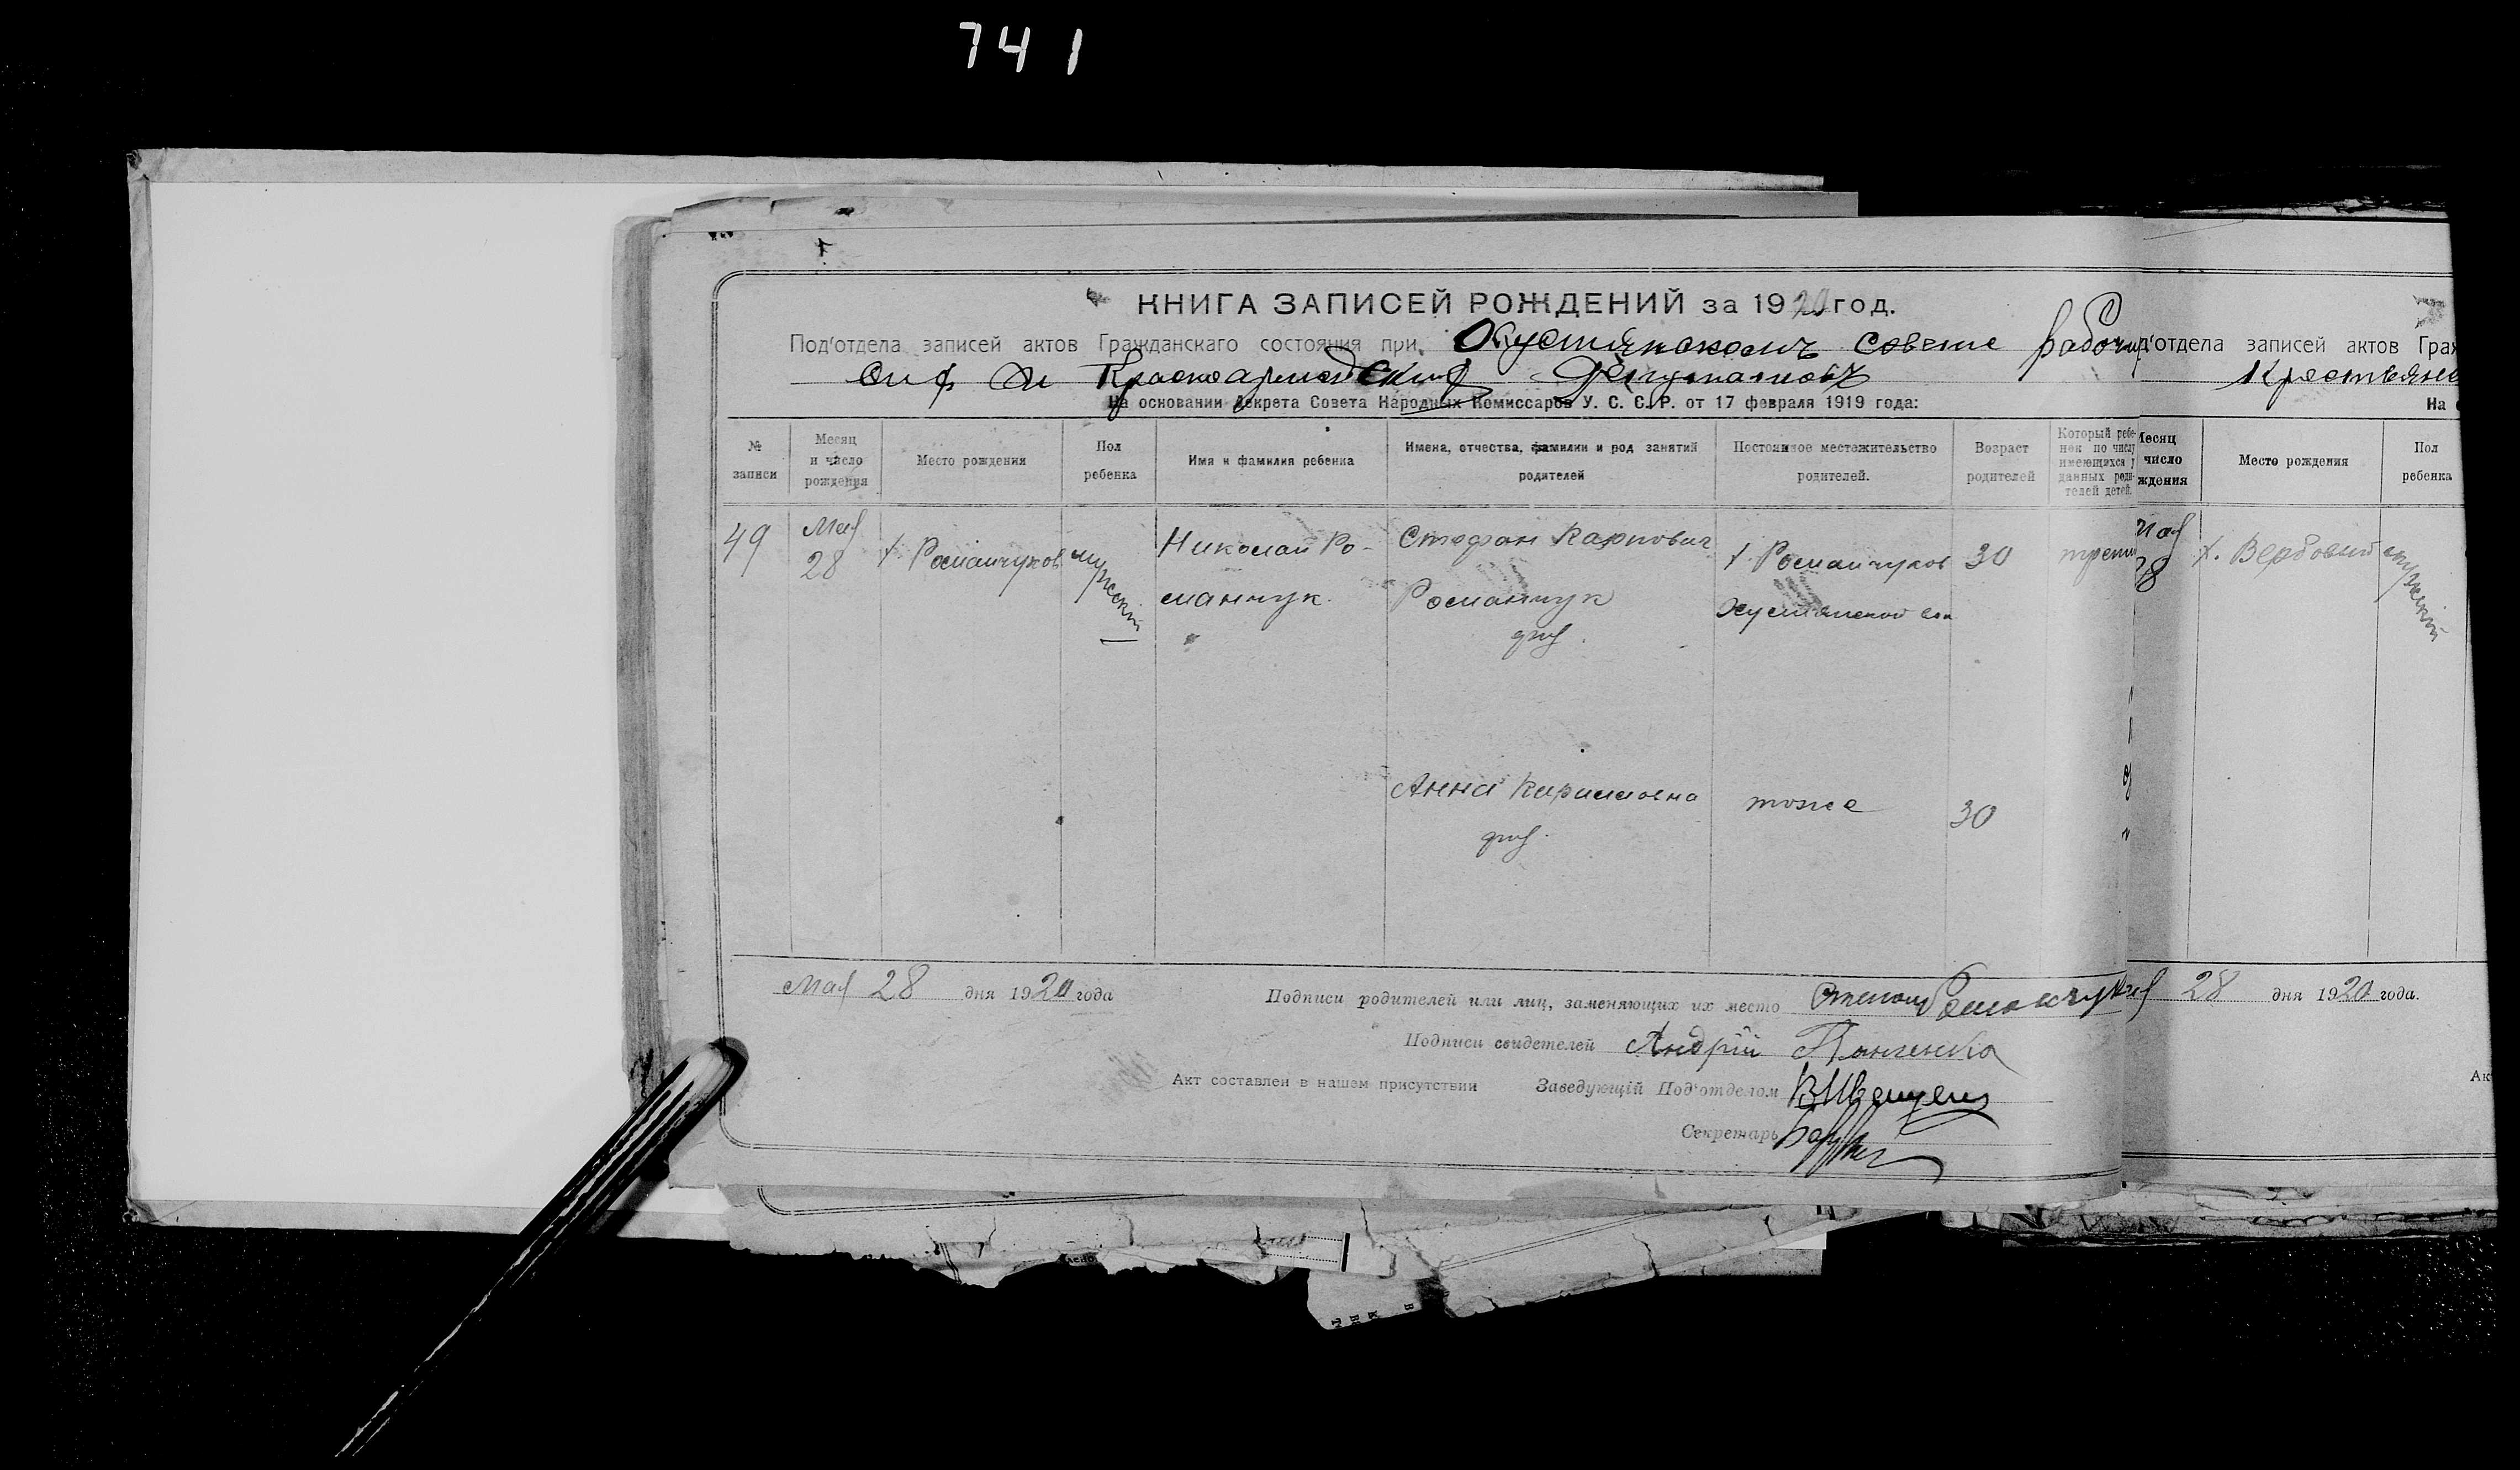 741
КНИГА ЗАПИСЕЙ РОЖДЕНИЙ за 1920 год.
Под'отдела записей актов Гражданскаго состояния при Хустянскомъ совете рабочи
Красноармейских Депутатовъ
На основании декрета Совета Народных Комиссаров У. С. С. Р. от 17 февраля 1919 года:
№ записи
Месяц и число рождения
Место рождения
Пол ребенка
Имя и фамилия ребенка
Имена, отчества, фамилии и род занятий родителей
Постоянное местожительство родителей.
Возраст родителей
Который ребенок по числу имеющихся у данных родителей детей.
49
Мая 28
х. Романчуков
мужской
Николай Романчук
Стефан Карпович
Романчук
х. Романчуков
Хустянской вол
30
трети
Анна
тоже
30
Мая 28 дня 1920 года
Подписи родителей или лиц, заменяющих их место Степан Романчук
Подписи свидетелей Андрій
Акт составлен в нашем присутствии Заведующій Под'отделом
Секретарь
д'отдела записей актов Граж
Крестьянс
На о
Месяц
число
ждения
Место рождения
Пол
ребенка
Мая
28
х. Вербовый
мужской
28 дня 1920 года.
Ак